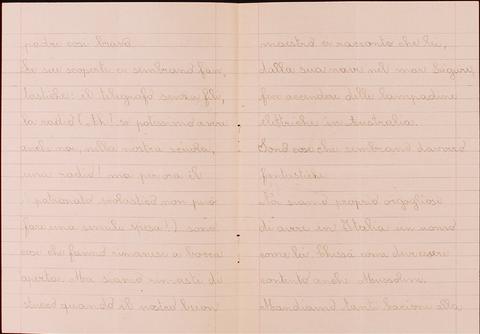 padre così bravo.
Le sue scoperte ci sembrano fan,
tastiche: il telegrafo senza fili,
la radio (Ah! se potessimo avere
anche noi, nella nostra scuola,
una radio! ma per ora il
patronato scolastico non può
fare una simile spesa!) sono
cose che fanno rimanere a bocca
aperta. Ma siamo rimasti di
stucco quando il nostro buon
maestro ci raccontò che lui,
dalla sua nave nel mar Ligure
fece accendere delle lampadine
elettriche in Australia.
Sono cose che sembrano davvero
fantastiche.
Noi siamo proprio orgogliosi
di avere in Italia un uomo
come lui. Chissà come dev'essere
contento anche Mussolini.
Mandiamo tanti bacioni alla